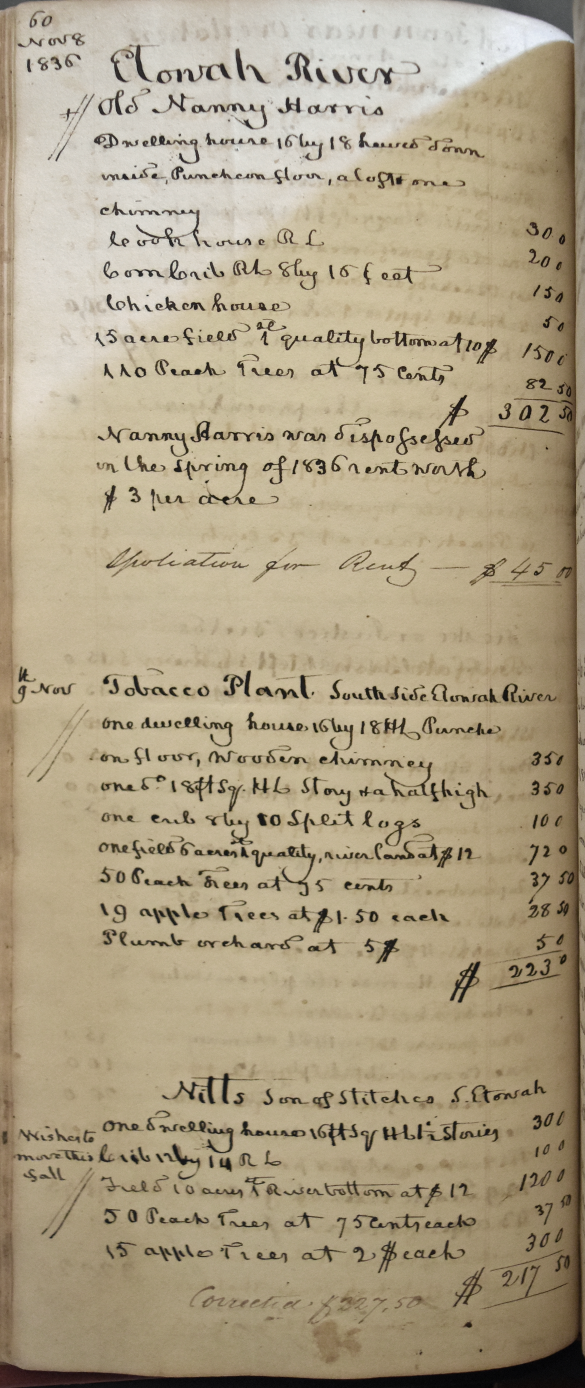 60
Nov 8
1836
Etowah River
Old Nanny Harris
Dwelling house 16 by 18 hewed down
inside, Puncheon floor, a loft & one
chimney 30 0
Cook house R L 20 0
Corn Crib R L 8 by 16 feet 15 0
Chicken house 5 0
15 acre field 1st quality bottom at 10$ 150 0
110 Peach Trees at 75 Cents 82 50
$ 302 50
Nanny Harris was dispossessed
in the Spring of 1836 rent worth
$ 3 per acre
Spoliation for Rent — $ 45 00
9th Nov
Tobacco Plant. South Side Etowah River
one dwelling house 16 by 18 HL Punche
on floor, wooden chimney 35 0
one do 18 ft Sq. HL Story & a half high 35 0
one crib 8 by 10 Split logs 10 0
one field 6 acres 1st quality, river land at $12 72 0
50 Peach Trees at 75 cents 37 50
19 apple Trees at $1.50 each 28 50
Plumb orchard at 5$ 5 0
$ 223 0
Nitts Son of Stitches S. Etowah
Wishes to
move this
fall
one dwelling house 16 ft Sq HL 1½ Stories 30 0
Crib 12 by 14 R L 10 0
Field 10 acres 1st River bottom at $12 120 0
50 Peach Trees at 75 Cents each 37 50
15 apple Trees at 2 $ each 30 0
$ 217 50
Corrected $227,50